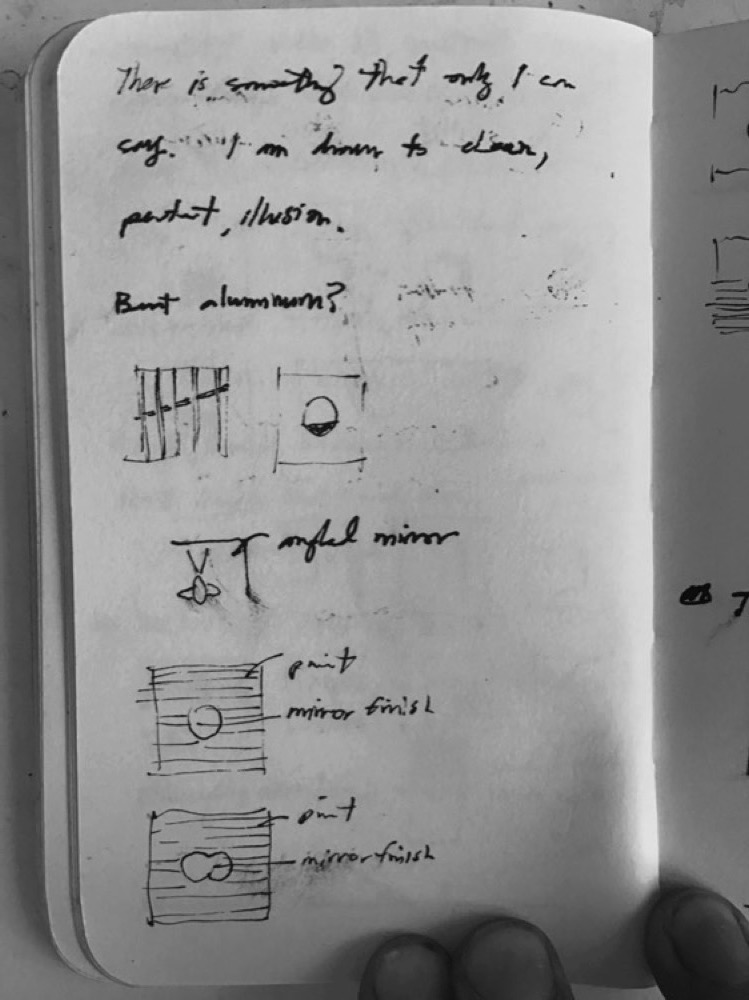 There is something that only I can
say. I am drawn to clean,
illusion.
Bent aluminum?
angled mirror
paint
mirror finish
paint
mirror finish
7